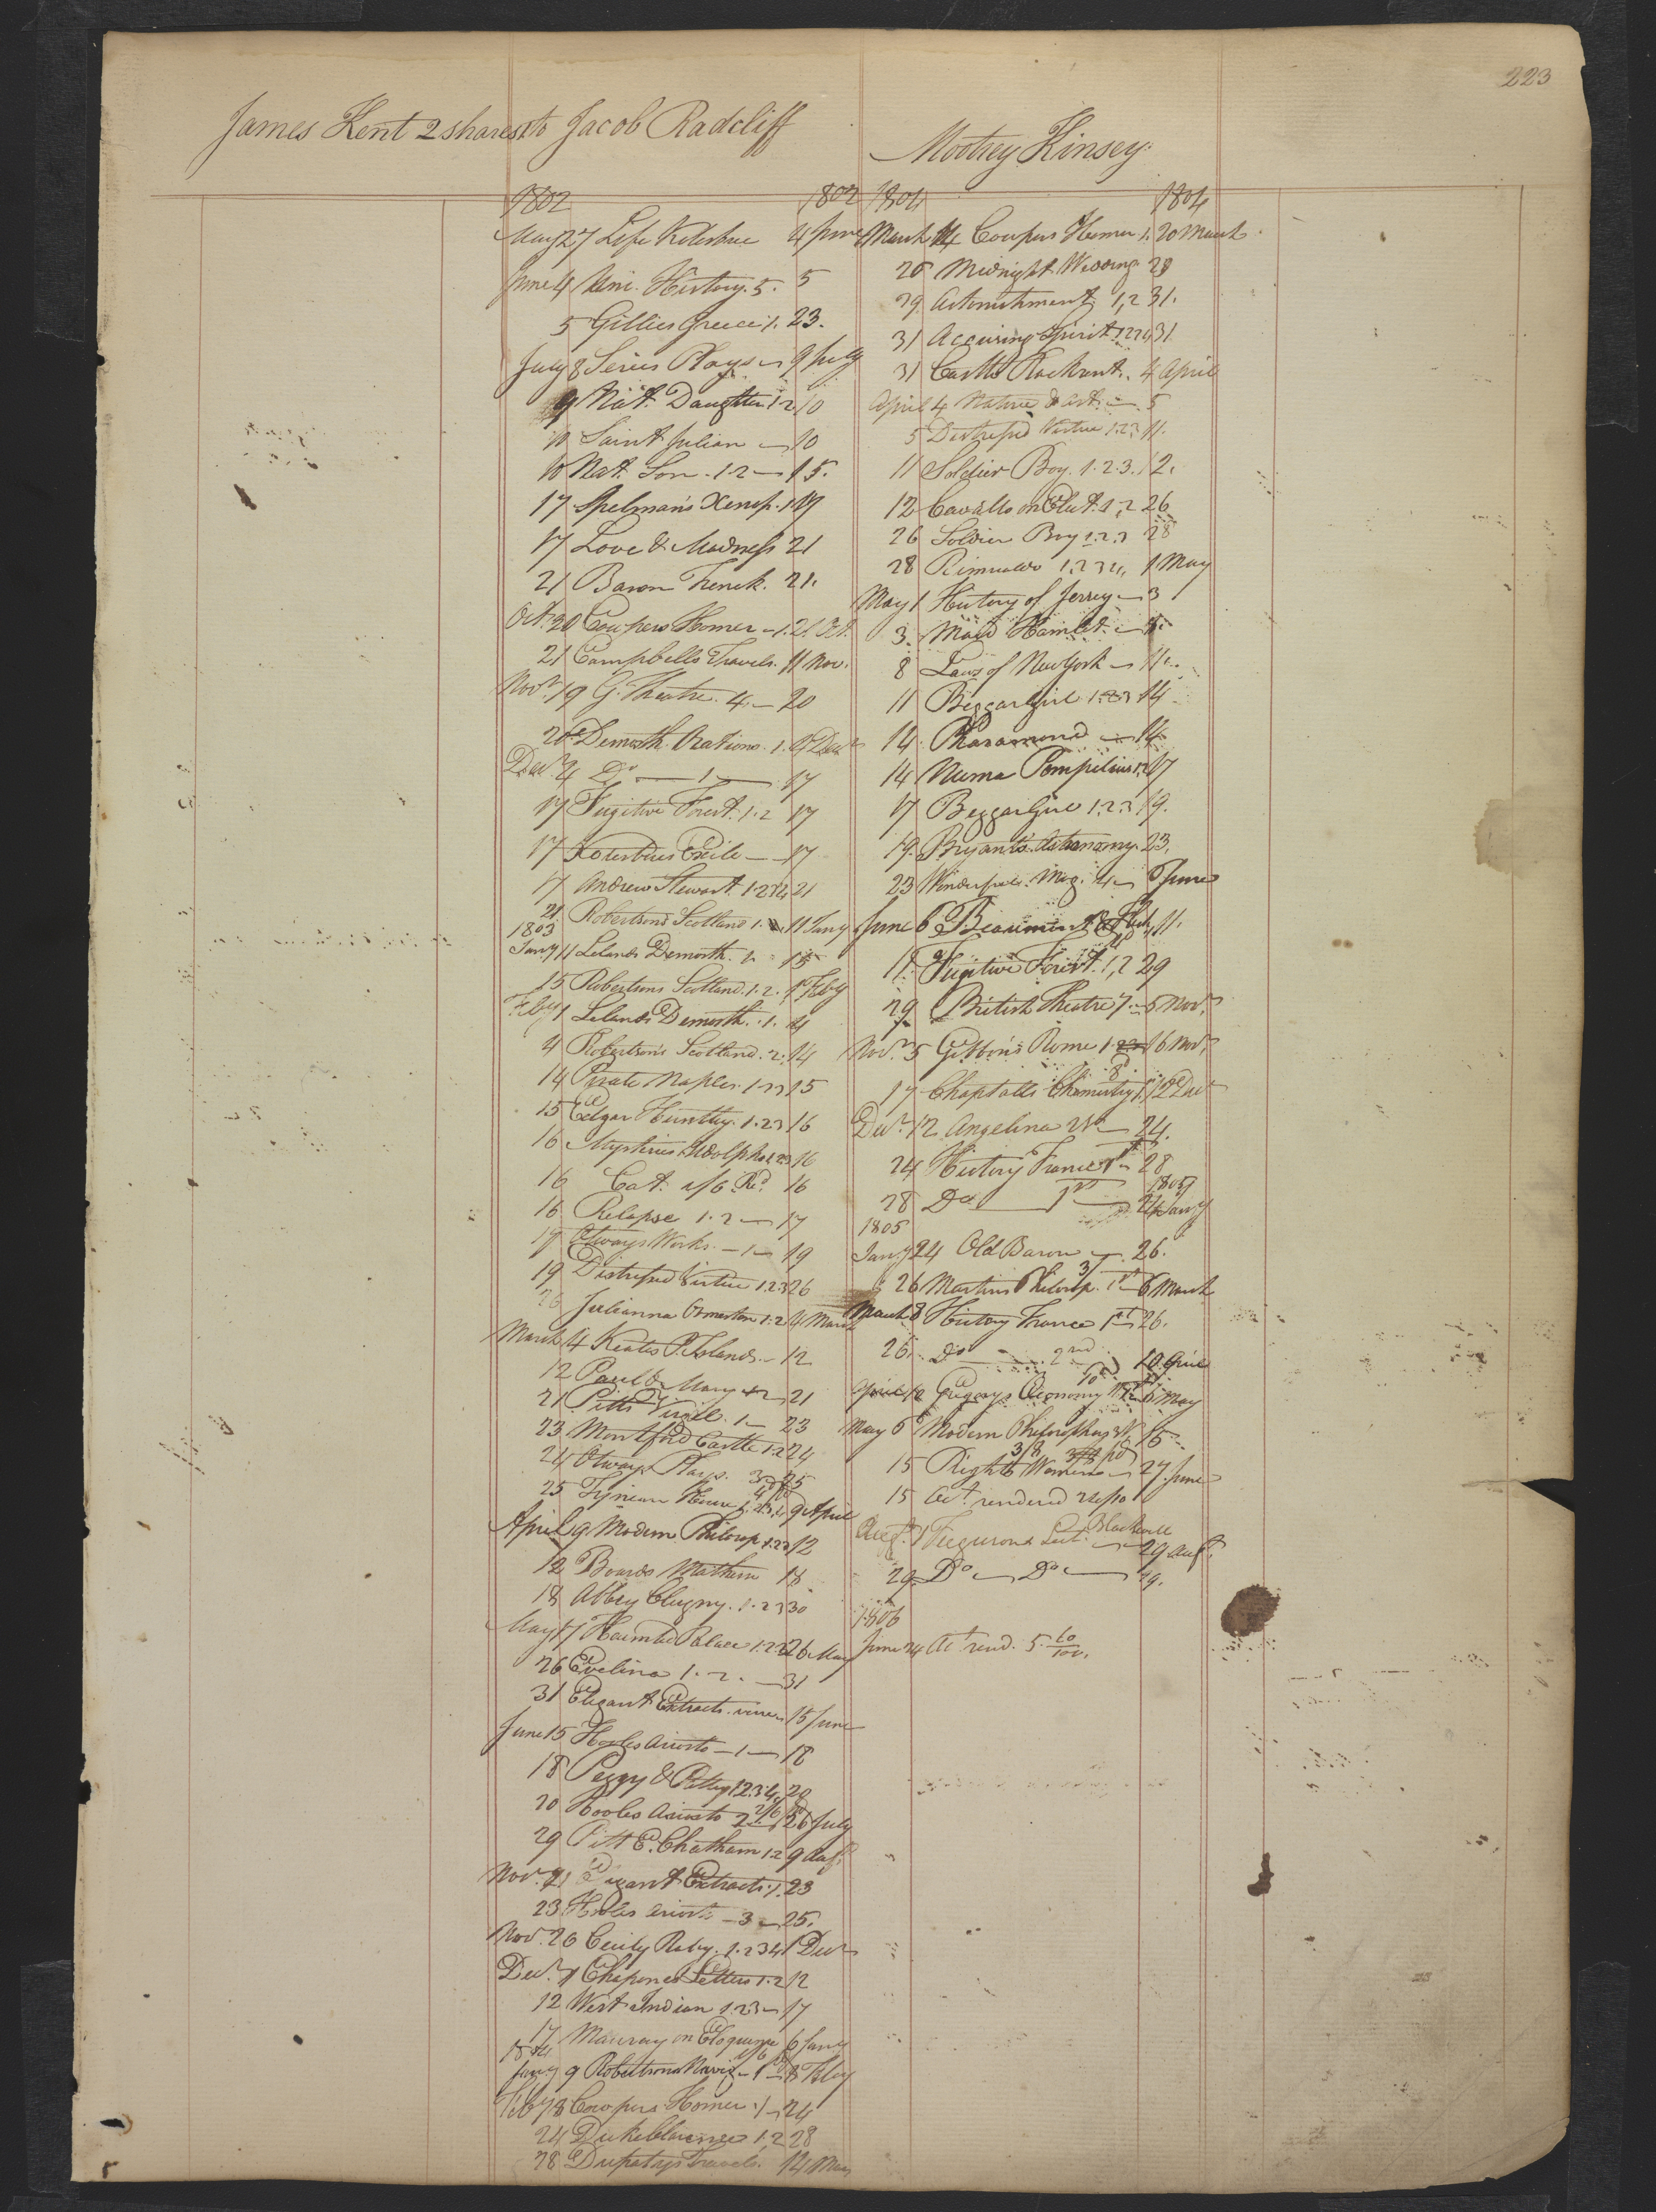 223
James Kent 2 shares to Jacob Radcliff
Mootrey Kinsey
1802 1802
May 27 Life Kotzebue 4 June
June 4 Uni. History. 5. 5
5 Gillies Greece 1. 23.
July 8 Series Plays 9 July
9 Nat. Daughter 1.2. 10
10 Saint Julian 10
10 Nat. Son. 1.2 15.
17 Spelman's Xenop. 1 17
17 Love & Madness 21
21 Baron Trenck. 21.
Oct. 20 Cowpers Homer 1. 21. Oct.
21 Campbells Travels. 11 Nov.
Novr 19 G. Theatre. 4. 20
20 Demosth. Orations. 1. 4 Decr
Decr 4 Do 1 17
17 Fugitive Forest. 1.2 17
17 Kotzebues Exile 17
17 Andrew Stewart. 1.2 21
21 Robertsons Scotland 1. 11 Jany
1803
Jany 11 Lelands Demosth. 1. 15
15 Robertsons Scotland. 1.2. 1 Feby
Feby 1 Lelands Demosth. 1. 4
4 Robertsons Scotland. 2. 14
14 Pirate Naples. 1.2.3 15
15 Edgar Huntley. 1.2.3 16
16 Mysteries Udolpho 1.2.3 16
16 Cat. 1/6 Pd. 16
16 Relapse 1.2 17
17 Otways Works. 1 19
19 Distressed Virtue 1.2.3 26
26 Julianna Ormeston 1.2 4 March
March 4 Keates P. Islands. 12
12 Paul & Mary 1.2 21
21 Pitts Virgil. 1 23
23 Montford Castle 1.2 24
24 Otways Plays. 3 25
25 9 April
April 9 Modern Philosop 1.2.3 12
12 Mathem 18
18 Abbey Clugny. 1.2.3 30
May 17 Haunted Palace 1.2.3 26 May
26 Evelina 1.2. 31
31 Elegant Extracts. 15 June
June 15 Hooles Ariosto 1 18
18 Peggy & Patty 1.2.3.4. 20
20 Hooles Ariosto 2 2/6 Pd 26 July
29 Pitt E. Chatham 1.2 9 Augt
Novr. 21 Elegant Extracts. 1. 23
23 Hooles Ariosto 3 25.
Nov. 26 Cecily Raby. 1.2.3.4 1 Decr
Decr. 1 Chapones Letters 1.2 12
12 West Indian 1.2.3 17
17 Maury on Eloquence 6 Jany
1804
Jany 9 Robertsons Navig 1 8 Feby
Feby 8 Cowpers Homer 1 24
24 Duke Clarence 1.2 28
28 Dupatys Travels. 14 Mar
1804 1804
March 14 Cowpers Homer 1. 20 March
20 Midnight Wedding 29
29 Astonishment 1,2 31.
31 Accusing Spirit 1 2 3 4 31
31 Castle Rackrent. 4 April
April 4 Nature & Art. 5
5 Distressed Virtue 1.2.3 11.
11 Soldier Boy. 1.2.3. 12.
12 Cavallo on Elect. 1,2 26
26 Soldier Boy 1.2.3 28
28 Rimualdo 1.2 3 4, 1 May
May 1 History of Jersey 3
3 Maid Hamlet 8.
8 Laws of New York 11.
11 Beggar Girl 1.2.3 14
14 Pharamond 14
14 Numa Pompilius 1.2 17
17 Beggar Girl 1.2.3 19.
19. Bryants Astronomy. 23.
23 Wonderful. Mag. 4 6 June
June 6 Beaumont & Fletch 11.
11. Fugitive Forest. 1,2 29
29 British Theatre 7. 5 Novr
Novr 5 Gibbons Rome 1 16 Novr
17 Chaptalls Chemistry 1 12 Decr
Decr 12 Angelina 24.
24 History France 1st 28
1805
28 Do 1st 24 Jany
1805
Jany 24 Old Baron 26.
26 Martins Philosop. 1st 6 March
March 8 History France 1st 26.
26. Do 2nd 10 April
April 10 Gregorys Economy 1st 6 May
May 6 Modern Philosophers 15
15 Rights Women 3/8 pd 27 June
15 Act. rendered
Augt. 1 Fergusons Lect. Blackwell 29 Augt.
29 Do Do 29.
1806
June 24 Act rend. 5. 60/100.